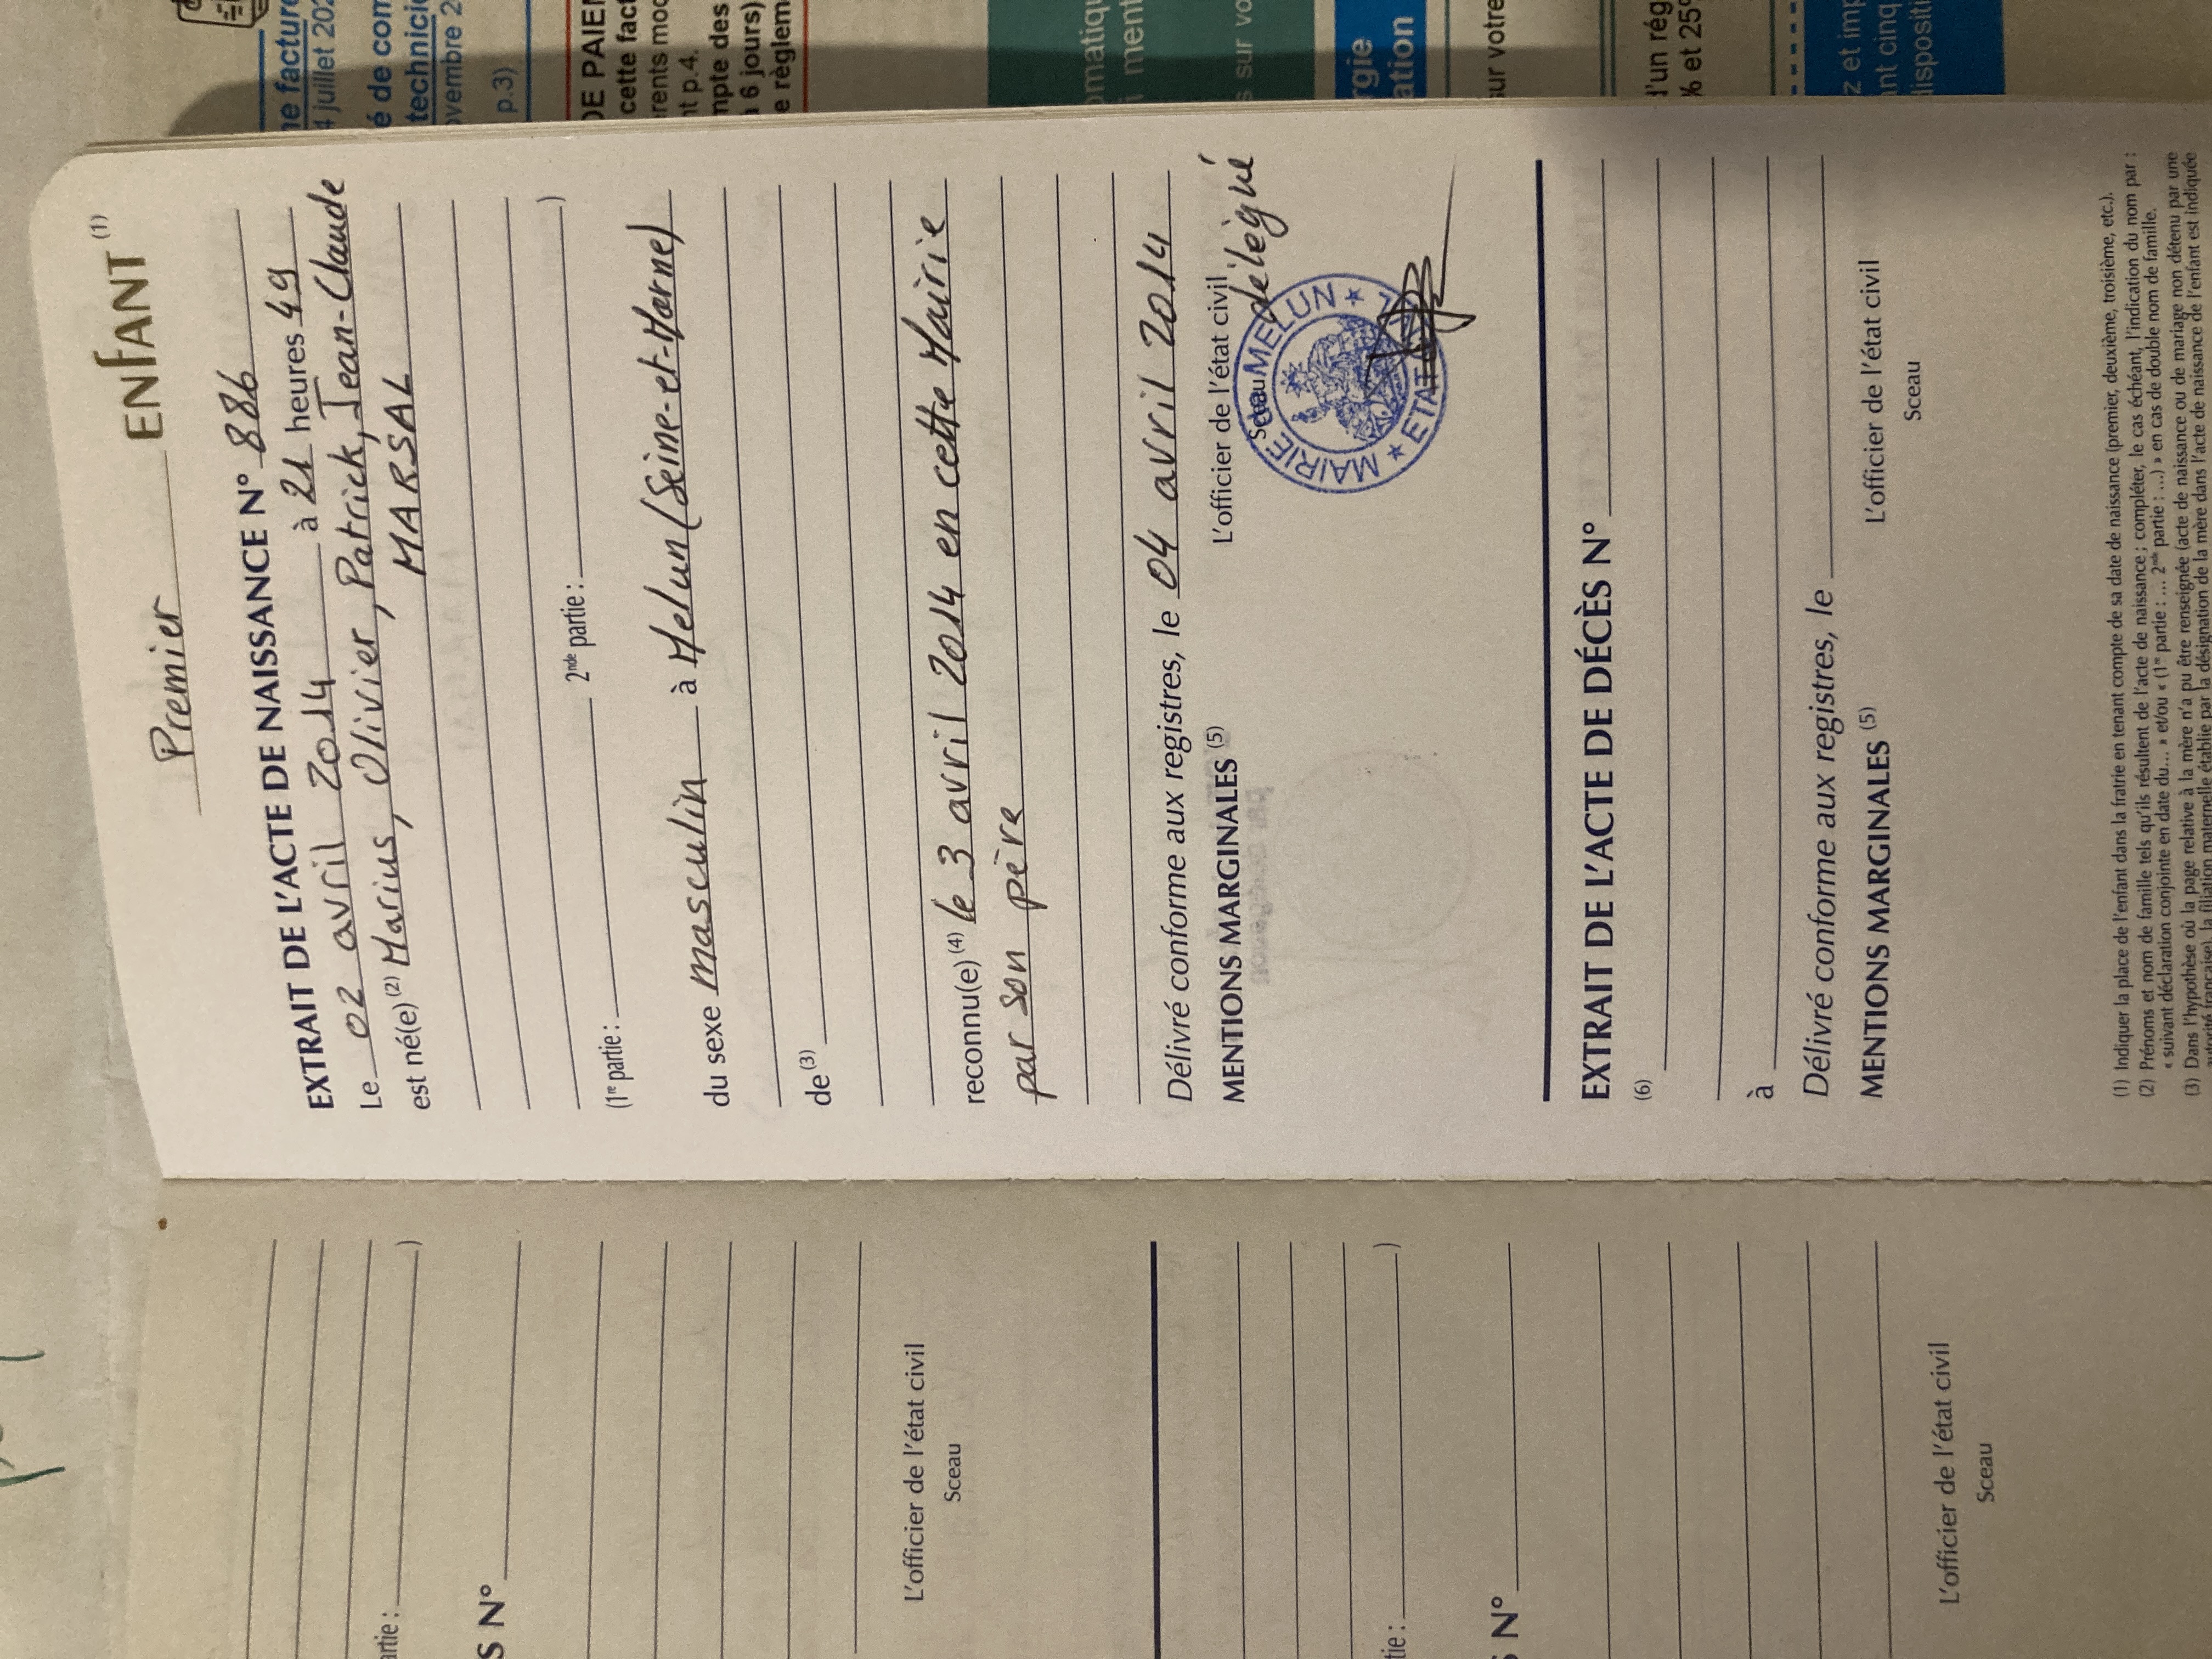 Premier ENFANT (1)
EXTRAIT DE L'ACTE DE NAISSANCE N° 886
Le 02 avril 2014 à 21 heures 49
est né(e) (2) Marius, Olivier, Patrick, Jean-Claude
MARSAL
(1re partie : 2nde partie : )
du sexe masculin à Melun (Seine-et-Marne)
de (3)
reconnu(e) (4) le 3 avril 2014 en cette Mairie
par son père
Délivré conforme aux registres, le 04 avril 2014
MENTIONS MARGINALES (5) L'officier de l'état civil
délégué
Sceau
MAIRIE MELUN ★ ETAT ★
EXTRAIT DE L'ACTE DE DÉCÈS N°
(6)
à
Délivré conforme aux registres, le
MENTIONS MARGINALES (5) L'officier de l'état civil
Sceau
(1) Indiquer la place de l'enfant dans la fratrie en tenant compte de sa date de naissance (premier, deuxième, troisième, etc.).
(2) Prénoms et nom de famille tels qu'ils résultent de l'acte de naissance ; compléter, le cas échéant, l'indication du nom par :
« suivant déclaration conjointe en date du... » et/ou « (1re partie : ... 2nde partie : ...) » en cas de double nom de famille.
(3) Dans l'hypothèse où la page relative à la mère n'a pu être renseignée (acte de naissance ou de mariage non détenu par une
autorité française), la filiation maternelle établie par la désignation de la mère dans l'acte de naissance de l'enfant est indiquée
artie : )
S N°
L'officier de l'état civil
Sceau
tie : )
S N°
L'officier de l'état civil
Sceau
ne facture
4 juillet 202
é de com
technici
ovembre 2
p.3)
DE PAIEM
cette fact
rents mod
nt p.4.
mpte des
6 jours)
e règlem
omatiqu
ment
s sur vo
rgie
ation
sur votre
d'un rég
% et 25
z et imp
nt cinq
disposit